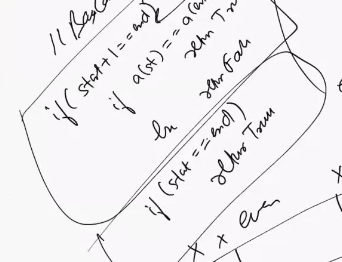 // Base
if (stat+1 == end)
if a(st) == a(en
return True
return Fals
if (stat == end)
return True
x x even
x